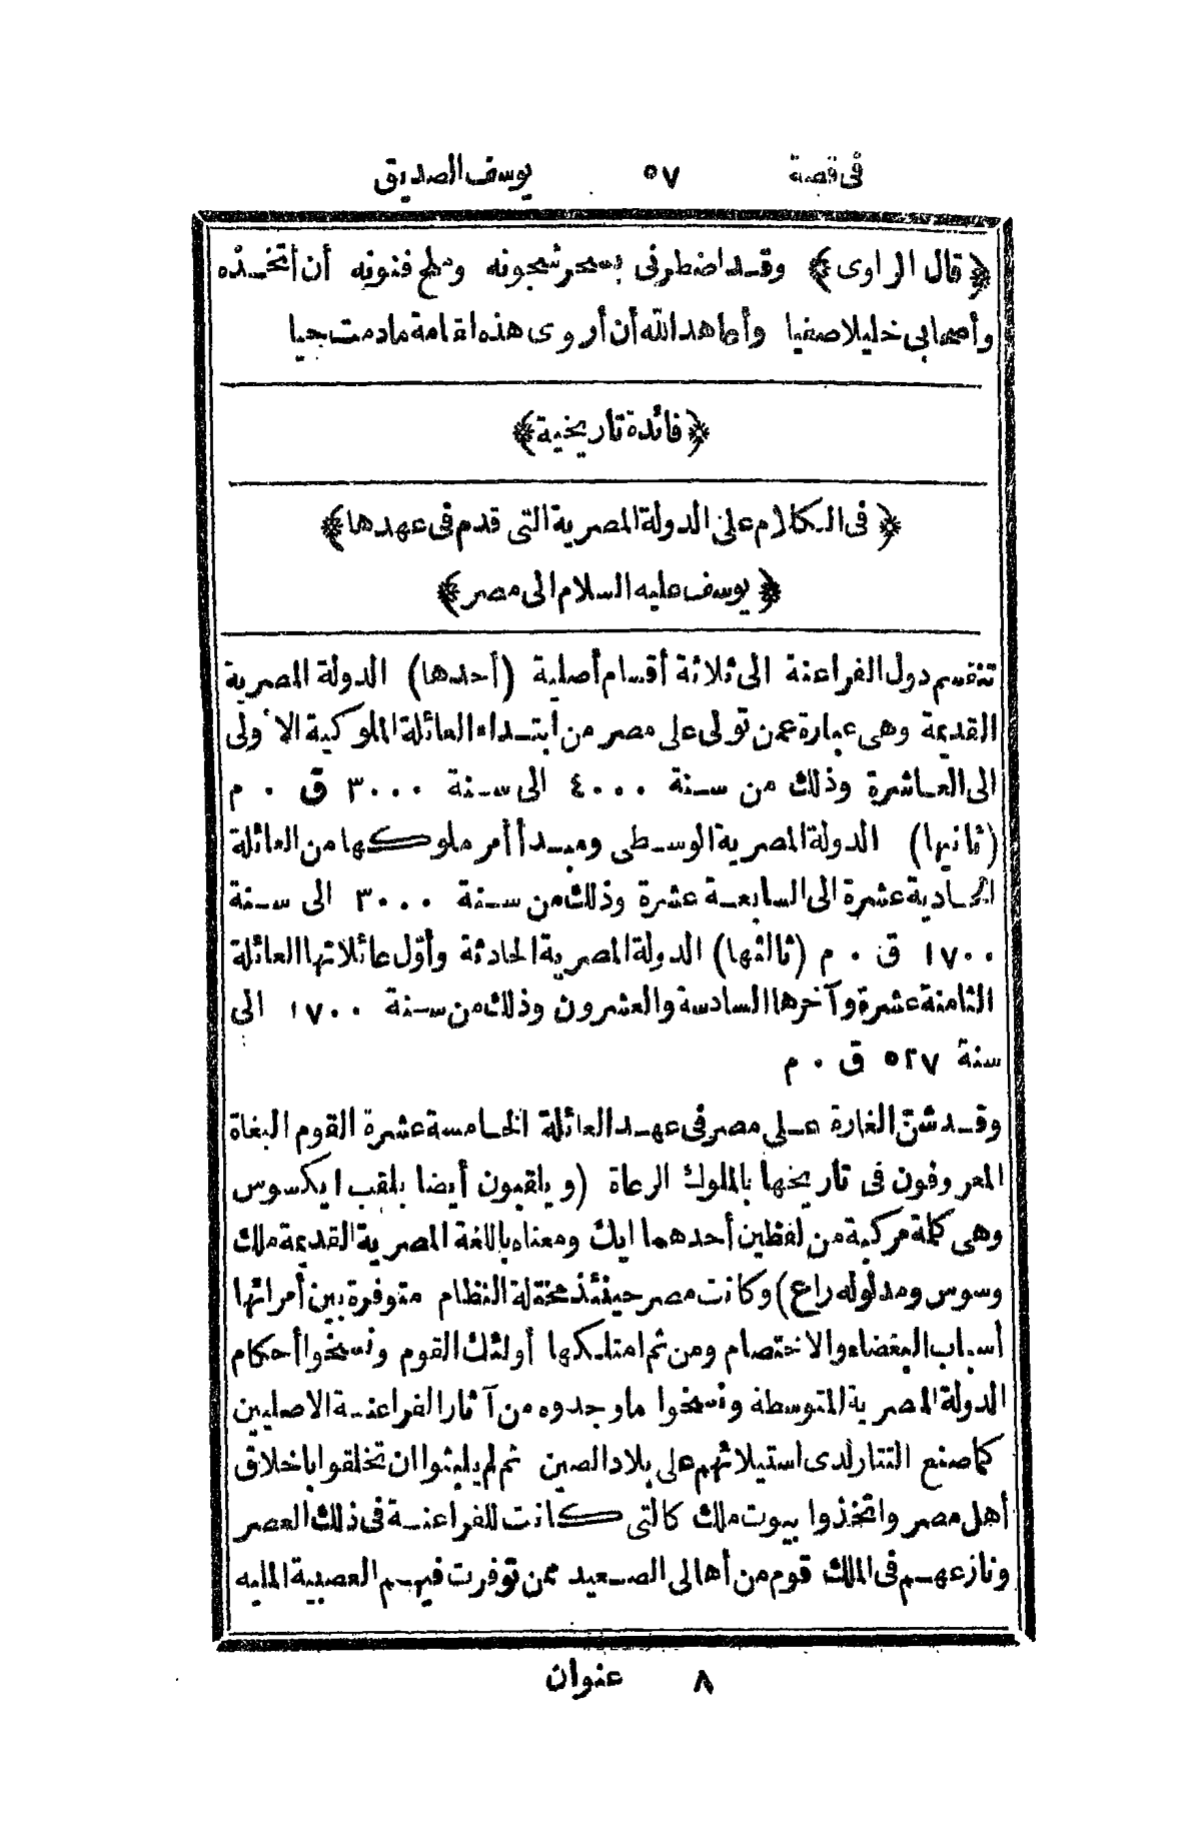 فى قصة ٥٧ يوسف الصديق
﴿قال الراوى﴾ وقد اضطرنى بسحر شجونه وملح فنونه أن أتخذه
وأصحابى خليلا صفيا وأعاهد الله أن أروى هذه المقامة مادمت حيا
﴿فائدة تاريخية﴾
﴿فى الكلام على الدولة المصرية التى قدم فى عهدها﴾
﴿يوسف عليه السلام الى مصر﴾
تنقسم دول الفراعنة الى ثلاثة أقسام أصلية (أحدها) الدولة المصرية
القديمة وهى عبارة عمن تولى على مصر من أبتداء العائلة الملوكية الأولى
الى العاشرة وذلك من سنة ٤٠٠٠ الى سنة ٣٠٠٠ ق ٠ م
(ثانيها) الدولة المصرية الوسطى ومبدأ أمر ملوكها من العائلة
الحادية عشرة الى السابعة عشرة وذلك من سنة ٣٠٠٠ الى سنة
١٧٠٠ ق ٠ م (ثالثها) الدولة المصرية الحادثة وأول عائلاتها العائلة
الثامنة عشرة وآخرها السادسة والعشرون وذلك من سنة ١٧٠٠ الى
سنة ٥٢٧ ق ٠ م
وقد شن الغارة على مصر فى عهد العائلة الخامسة عشرة القوم البغاة
المعروفون فى تاريخها بالملوك الرعاة (ويلقبون أيضا بلقب ايكسوس
وهى كلة مركبة من لفظين أحدهما ايك ومعناه باللغة المصرية القديمة ملك
وسوس ومدلوله راع) وكانت مصر حينئذ مختلة النظام متوفرة بين أمرائها
أسباب البغضاء والاختصام ومن ثم امتلكها أولئك القوم ونسخوا أحكام
الدولة المصرية المتوسطة ونسخوا ماوجدوه من آثار الفراعنة الاصليين
كما صنع التتار لدى استيلائهم على بلاد الصين ثم لم يلبثوا ان تخلقوا باخلاق
أهل مصر واتخذوا بيوت ملك كالتى كانت للفراعنة فى ذلك العصر
ونازعهم فى الملك قوم من أهالى الصعيد ممن توفرت فيهم العصبية المليه
٨ عنوان